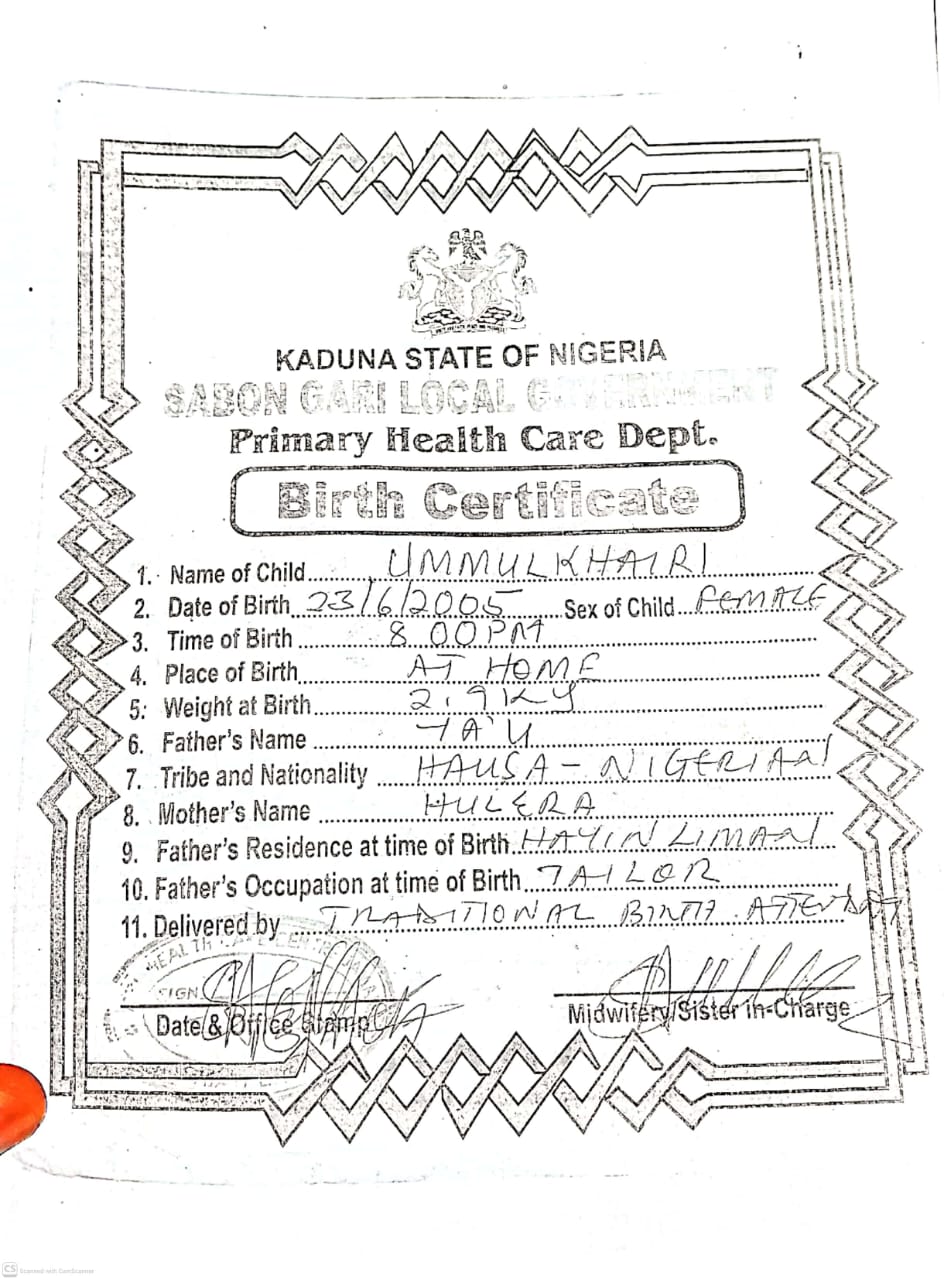 KADUNA STATE OF NIGERIA
SABON GARI LOCAL GOVERNMENT
Primary Health Care Dept.
Birth Certificate
1. Name of Child UMMULKHAIRI
2. Date of Birth 23/6/2005 Sex of Child FEMALE
3. Time of Birth 8.00PM
4. Place of Birth AT HOME
5. Weight at Birth 2.9Kg
6. Father's Name YA'U
7. Tribe and Nationality HAUSA - NIGERIAN
8. Mother's Name HULERA
9. Father's Residence at time of Birth HAYIN LIMAN
10. Father's Occupation at time of Birth TAILOR
11. Delivered by TRADITIONAL BIRTH ATTENDANT
HEALTH CARE
SIGN
Date & Office Stamp Midwifery/Sister in-Charge
CS Scanned with CamScanner